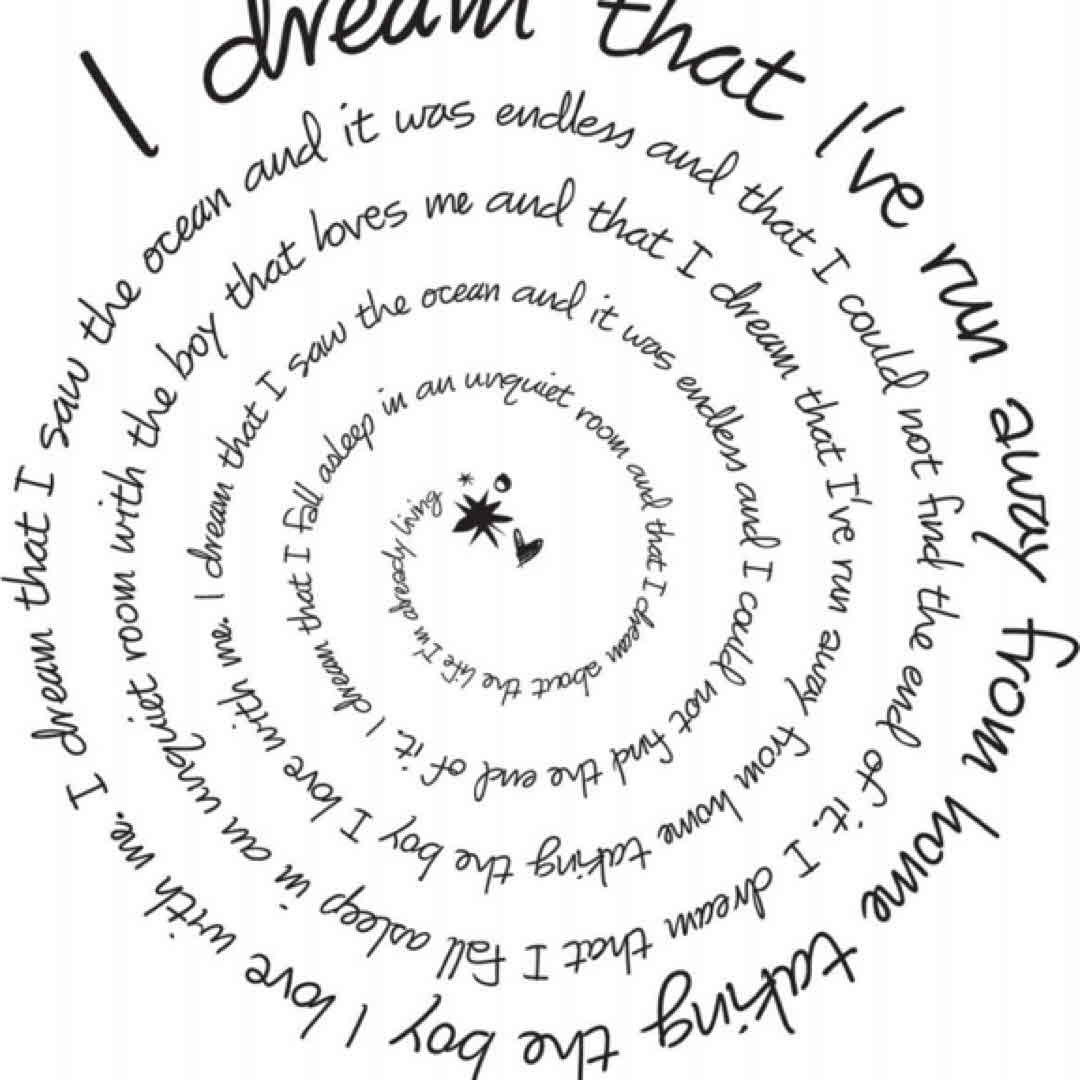 I dream that I've run away from home taking the boy I love with me. I dream that I saw the ocean and it was endless and that I could not find the end of it. I dream that I fall asleep in an unquiet room with the boy that loves me and that I dream that I've run away from home taking the boy I love with me. I dream that I saw the ocean and it was endless and I could not find the end of it. I dream that I fall asleep in an unquiet room and that I dream about the life I'm already living